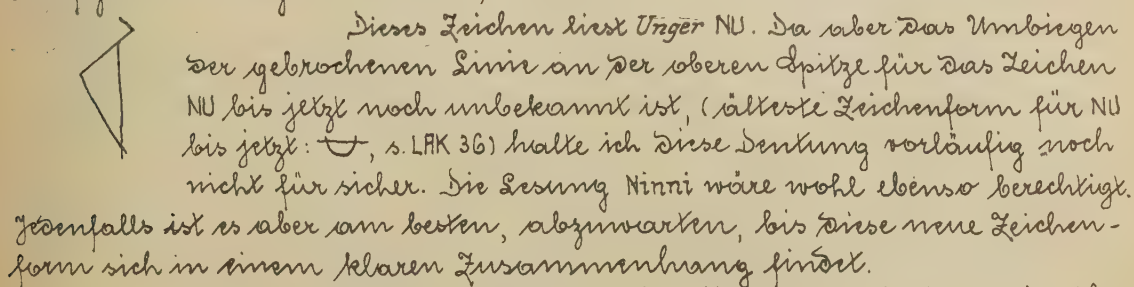 Dieses Zeichen liest Unger NU. Da aber das Umbiegen
der gebrochenen Linie an der oberen Spitze für das Zeichen
NU bis jetzt noch unbekannt ist, (älteste Zeichenform für NU
bis jetzt: , s. LAK 36) halte ich diese Deutung vorläufig noch
nicht für sicher. Die Lesung Ninni wäre wohl ebenso berechtigt.
Jedenfalls ist es aber am besten, abzuwarten, bis diese neue Zeichen-
form sich in einem klaren Zusammenhang findet.